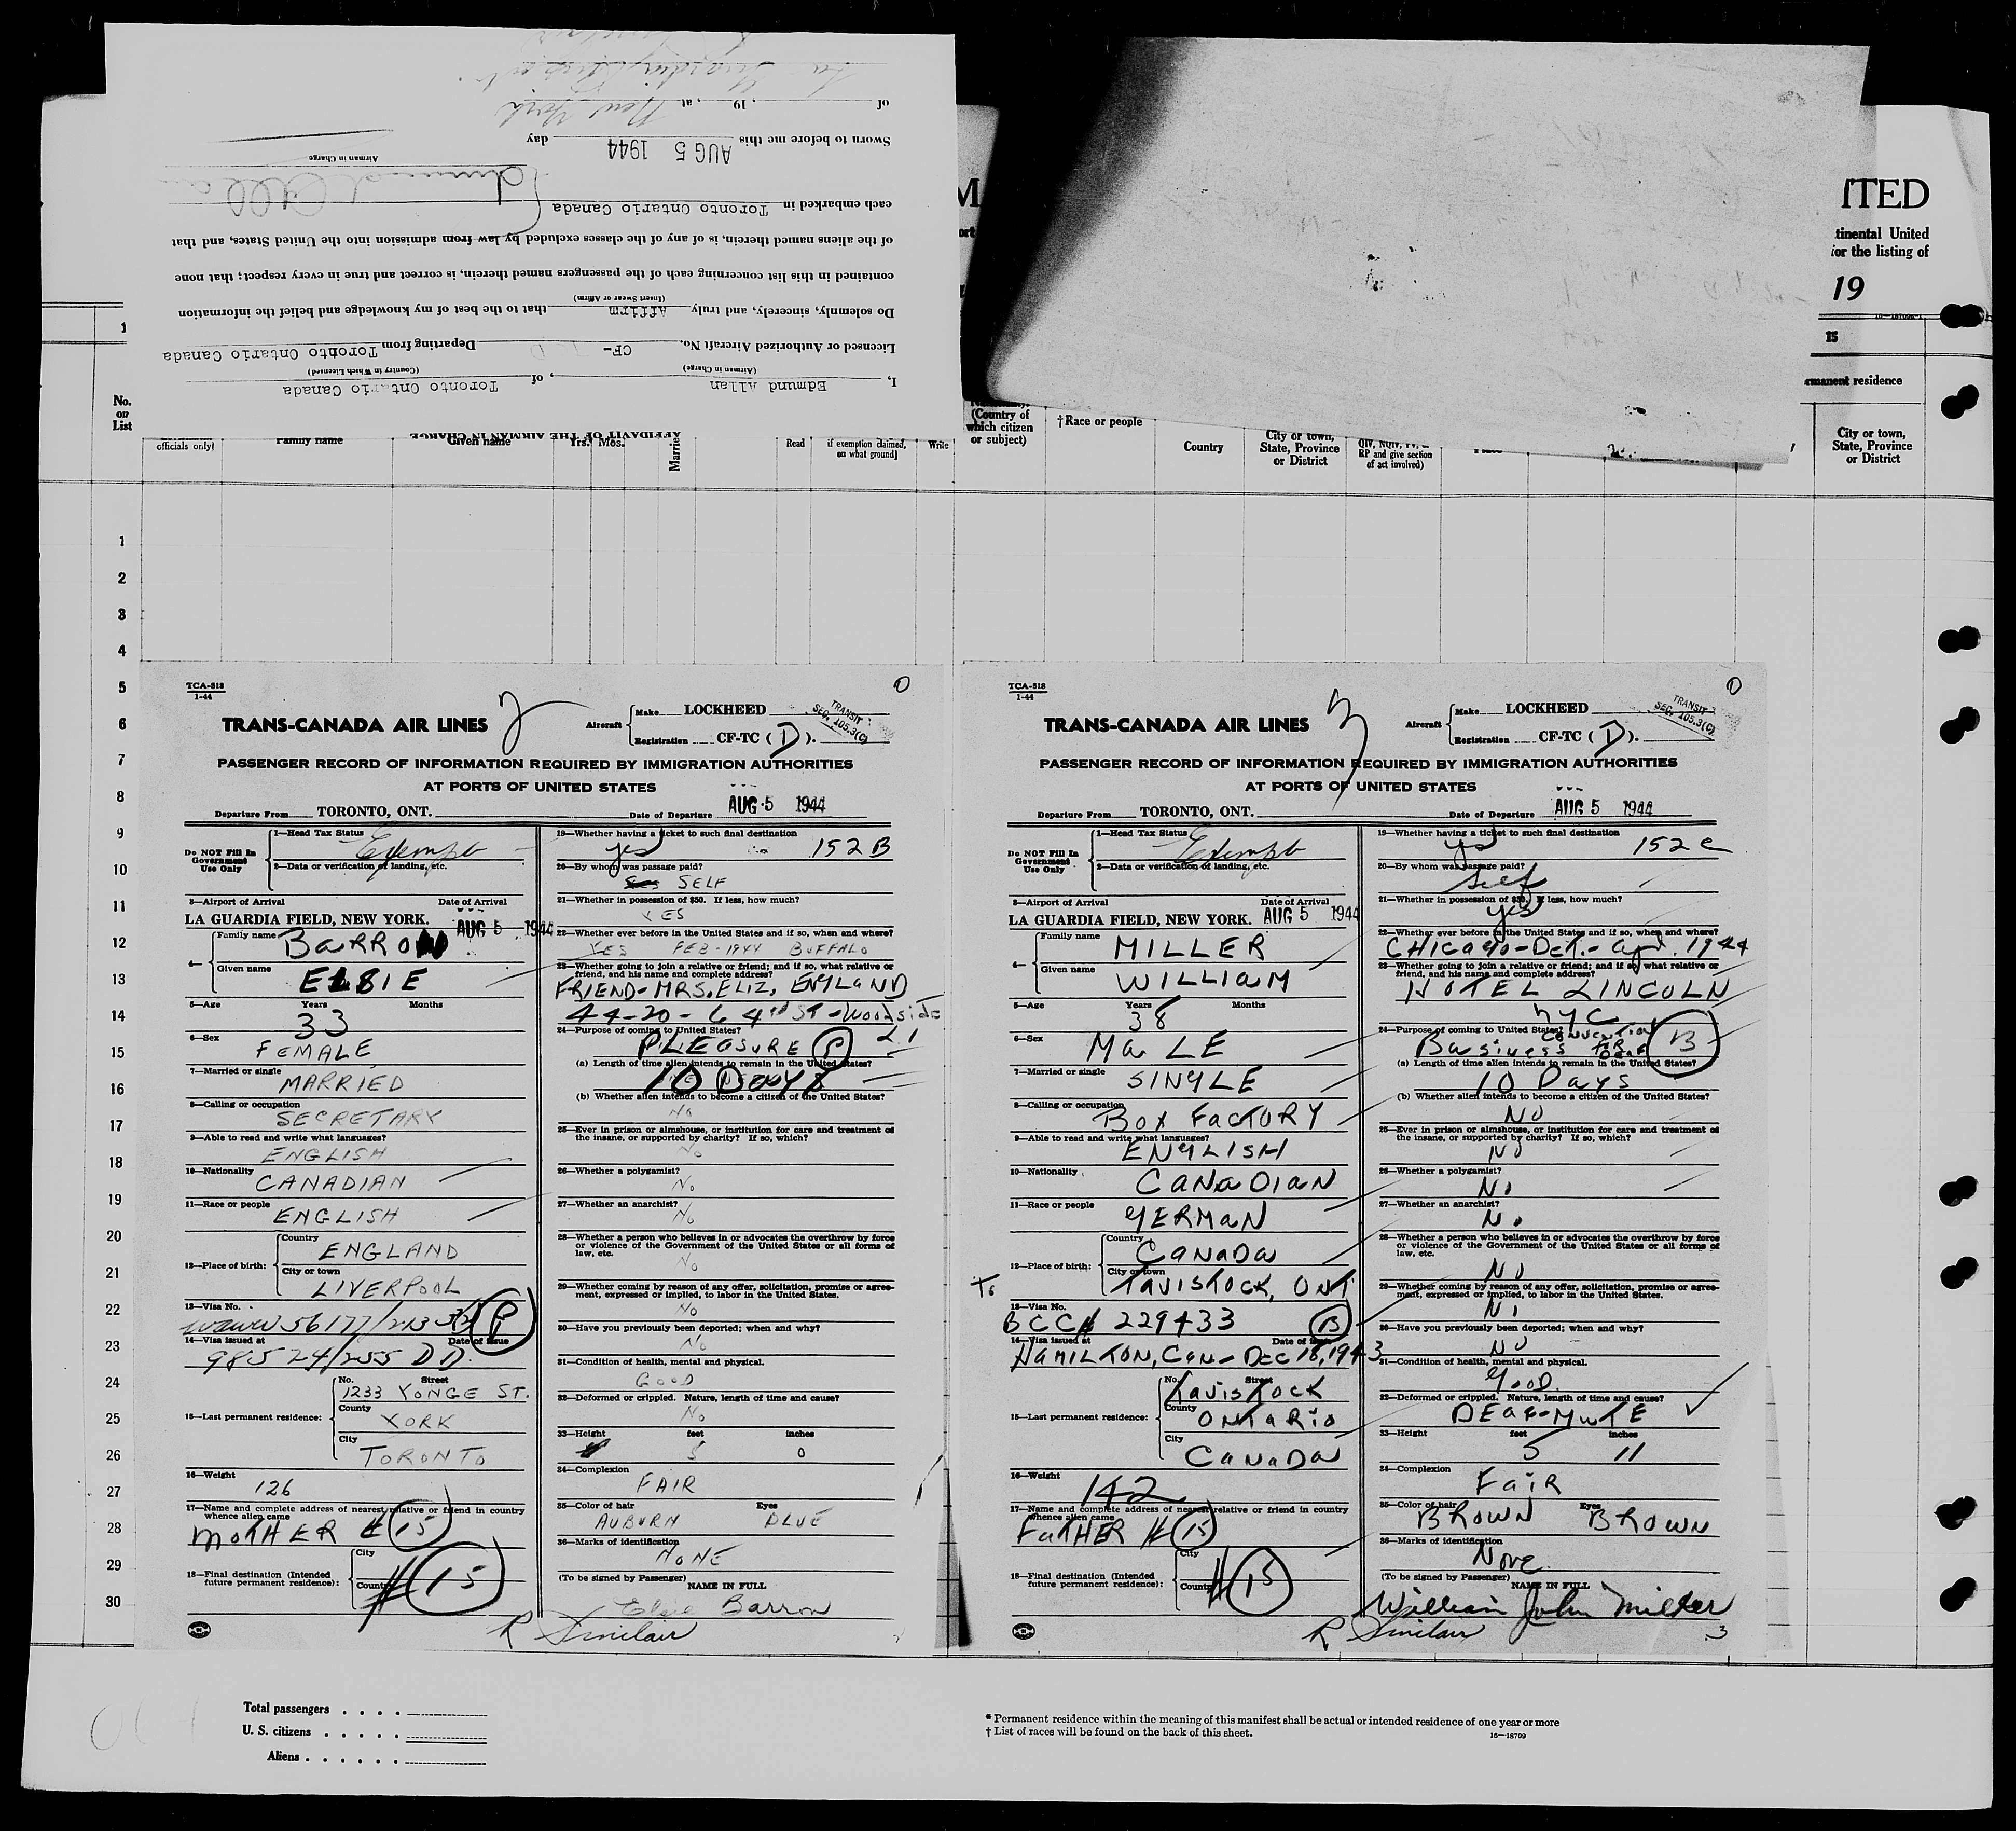 of ______ , 19 __ , at New York
Sworn to before me this AUG 5 1944 day
Airman in Charge
each embarked in Toronto Ontario Canada
of the aliens named therein, is of any of the classes excluded by law from admission into the United States, and that
contained in this list concerning each of the passengers named therein, is correct and true in every respect; that none
(Insert Swear or Affirm)
Do solemnly, sincerely, and truly Affirm that to the best of my knowledge and belief the information
Licensed or Authorized Aircraft No. CF- D Departing from Toronto Ontario Canada
(Airman in Charge) (Country in Which Licensed)
I, Edmund Allan , of Toronto Ontario Canada
AFFIDAVIT OF THE AIRMAN IN CHARGE
ITED
tinental United
for the listing of
19
1
15
rmanent residence
No.
on
List
officials only)
Family name
Given name
Yrs. Mos.
Married
Read
if exemption claimed,
on what ground]
Write
(Country of
which citizen
or subject)
†Race or people
Country
City or town,
State, Province
or District
RP and give section
of act involved)
City or town,
State, Province
or District
1
2
3
4
5
6
7
8
9
10
11
12
13
14
15
16
17
18
19
20
21
22
23
24
25
26
27
28
29
30
TCA-518
1-44
2
TRANS-CANADA AIR LINES
Aircraft
Make LOCKHEED
Registration CF-TC ( D ).
TRANSIT
SEC. 105.3(C)
PASSENGER RECORD OF INFORMATION REQUIRED BY IMMIGRATION AUTHORITIES
AT PORTS OF UNITED STATES
Departure From TORONTO, ONT. Date of Departure AUG 5 1944
Do NOT Fill In
Government
Use Only
1—Head Tax Status
Exempt
2—Data or verification of landing, etc.
3—Airport of Arrival Date of Arrival
LA GUARDIA FIELD, NEW YORK. AUG 5 1944
4—
Family name BARRON
Given name ELSIE
5—Age Years Months
33
6—Sex
FEMALE
7—Married or single
MARRIED
8—Calling or occupation
SECRETARY
9—Able to read and write what languages?
ENGLISH
10—Nationality
CANADIAN
11—Race or people
ENGLISH
12—Place of birth:
Country
ENGLAND
City or town
LIVERPOOL
13—Visa No.
P
14—Visa issued at Date of Issue
98524/255 DD
15—Last permanent residence:
No. Street
1233 YONGE ST.
County
YORK
City
TORONTO
16—Weight
126
17—Name and complete address of nearest relative or friend in country
whence alien came
MOTHER # 15
18—Final destination (Intended
future permanent residence):
City
Country
# 15
19—Whether having a ticket to such final destination
yes 152 B
20—By whom was passage paid?
SELF
21—Whether in possession of $50. If less, how much?
YES
22—Whether ever before in the United States and if so, when and where?
YES FEB-1944 BUFFALO
23—Whether going to join a relative or friend; and if so, what relative or
friend, and his name and complete address?
FRIEND-MRS. ELIZ. ENGLAND
44-20-64th ST-Woodside
24—Purpose of coming to United States? L I
PLEASURE P
(a) Length of time alien intends to remain in the United States?
10 DAYS
(b) Whether alien intends to become a citizen of the United States?
No
25—Ever in prison or almshouse, or institution for care and treatment of
the insane, or supported by charity? If so, which?
No
26—Whether a polygamist?
No
27—Whether an anarchist?
No
28—Whether a person who believes in or advocates the overthrow by force
or violence of the Government of the United States or all forms of
law, etc.
No
29—Whether coming by reason of any offer, solicitation, promise or agree-
ment, expressed or implied, to labor in the United States.
No
30—Have you previously been deported; when and why?
No
31—Condition of health, mental and physical.
GOOD
32—Deformed or crippled. Nature, length of time and cause?
No
33—Height feet inches
5 0
34—Complexion
FAIR
35—Color of hair Eyes
AUBURN BLUE
36—Marks of identification
NONE
(To be signed by Passenger) NAME IN FULL
Elsie Barron
R Sinclair
TCA-518
1-44
3
TRANS-CANADA AIR LINES
Aircraft
Make LOCKHEED
Registration CF-TC ( D ).
TRANSIT
SEC. 105.3(C)
PASSENGER RECORD OF INFORMATION REQUIRED BY IMMIGRATION AUTHORITIES
AT PORTS OF UNITED STATES
Departure From TORONTO, ONT. Date of Departure AUG 5 1944
Do NOT Fill In
Government
Use Only
1—Head Tax Status
Exempt
2—Data or verification of landing, etc.
3—Airport of Arrival Date of Arrival
LA GUARDIA FIELD, NEW YORK. AUG 5 1944
4—
Family name MILLER
Given name WILLIAM
5—Age Years Months
38
6—Sex
MALE
7—Married or single
SINGLE
8—Calling or occupation
BOX FACTORY
9—Able to read and write what languages?
ENGLISH
10—Nationality
CANADIAN
11—Race or people
GERMAN
12—Place of birth:
Country
CANADA
City or town
TAVISTOCK, ONT
13—Visa No.
BCC# 229433 B
14—Visa issued at Date of Issue
HAMILTON, CAN- DEC 18, 1943
15—Last permanent residence:
No. Street
TAVISTOCK
County
ONTARIO
City
CANADA
16—Weight
142
17—Name and complete address of nearest relative or friend in country
whence alien came
FATHER # 15
18—Final destination (Intended
future permanent residence):
City
Country
# 15
19—Whether having a ticket to such final destination
yes 152 C
20—By whom was passage paid?
self
21—Whether in possession of $50. If less, how much?
yes
22—Whether ever before in the United States and if so, when and where?
CHICAGO-Det.- Apr. 1944
23—Whether going to join a relative or friend; and if so, what relative or
friend, and his name and complete address?
HOTEL LINCOLN
NYC
24—Purpose of coming to United States?
Business CONVENTION FOR DEAF B
(a) Length of time alien intends to remain in the United States?
10 Days
(b) Whether alien intends to become a citizen of the United States?
NO
25—Ever in prison or almshouse, or institution for care and treatment of
the insane, or supported by charity? If so, which?
NO
26—Whether a polygamist?
No
27—Whether an anarchist?
No
28—Whether a person who believes in or advocates the overthrow by force
or violence of the Government of the United States or all forms of
law, etc.
NO
29—Whether coming by reason of any offer, solicitation, promise or agree-
ment, expressed or implied, to labor in the United States.
No
30—Have you previously been deported; when and why?
NO
31—Condition of health, mental and physical.
GOOD
32—Deformed or crippled. Nature, length of time and cause?
DEAF-MUTE
33—Height feet inches
5 11
34—Complexion
FAIR
35—Color of hair Eyes
BROWN BROWN
36—Marks of identification
NONE
(To be signed by Passenger) NAME IN FULL
William John Miller
R Sinclair 3
Total passengers . . . .
U. S. citizens . . . . .
Aliens . . . . . .
* Permanent residence within the meaning of this manifest shall be actual or intended residence of one year or more
† List of races will be found on the back of this sheet. 16—18709